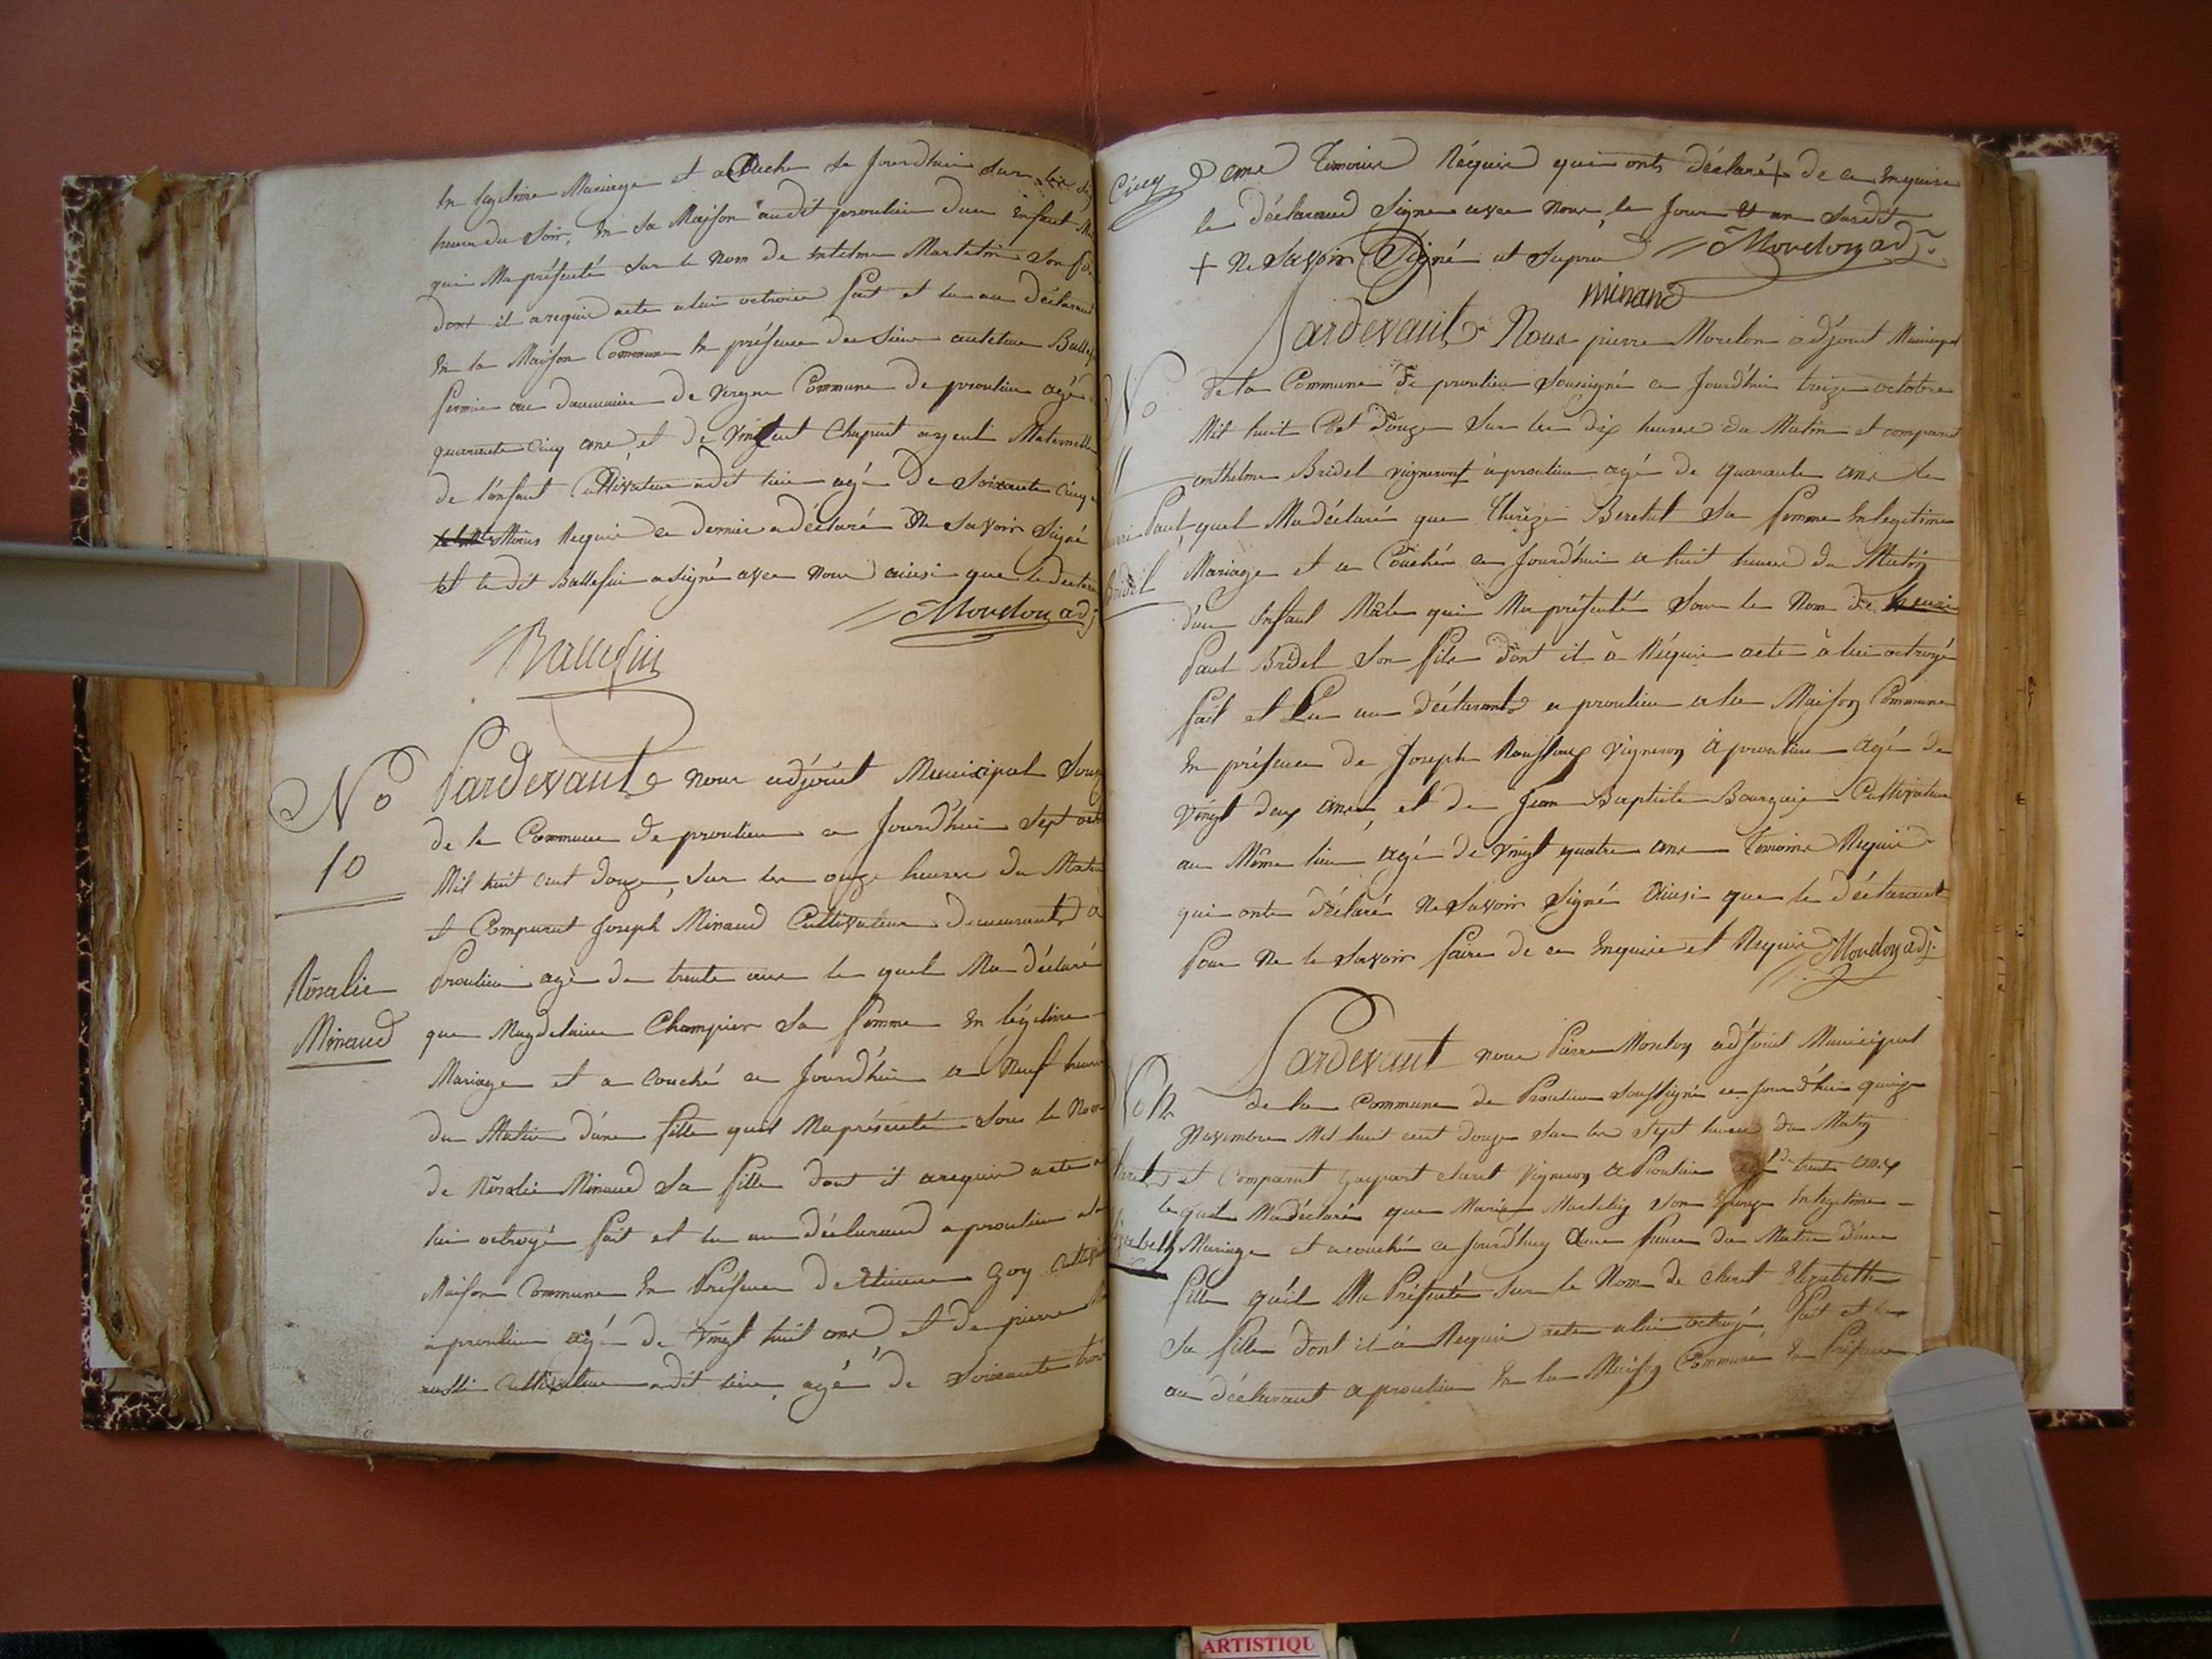 En legitime Mariage et acCouche Se Jourdhui Sur les Six
heures du Soir, En Sa Maison audit proulieu dun Enfant
qui Ma présenté Sur le Nom de Antelme Martelin Son fils
dont il a requis acte a lui octroié fait et lu au Déclarant
En la Maison Commune En présence des Sieur antelme Ballefin
fermier au domaine de Vergne Commune de proulieu agé
quarante Cinq ans et de Vincent Chapuit ayeul Maternelle
de l'enfant Cultivateur adit lieu agé De Soixante Cinq
témoins Requis ce dernier a déclaré Ne Savoir Signé
et le dit Ballefin a Signé avec Nous ainsi que le declarant
Morelon adj
Ballefin
No
10
Rosalie
Minaud
Pardevant Nous adjoint Municipal Sousg
de la Commune de proulieu ce Jourd'hui Sept oct
Mil huit cent douze, Sur les onze heures du Matin
et Comparut Joseph Minaud Cultivateur demeurant à
Proulieu agé de trente ans le quel Ma déclaré
que Magdelaine Champier Sa femme En légitime
Mariage et a Couché ce Jourd'hui a Neuf heures
du Matin d'une fille quil Ma présenté Sous le Nom
de Rosalie Minaud Sa fille dont il a requis acte a
lui octroyé fait et lu au déclarand a proulieu a la
Maison Commune En Présence de Etienne Goy Cultiv
a proulieu agé de Vingt huit ans et de pierre
aussi Cultivateur adit lieu, agé de Soixante trois
Cinq ans Temoins Réquis qui onts déclaré + de ce Enquis
le déclarand Signe avec Nous le Jour et an Susdit
+ Ne Savoir Signé ut Supra Morelon adj
minand
Pardevant Nous pierre Morelon adjoint Municipal
No
11
Paul
Bridel
de la Commune De proulieu Soussigné ce Jourd'hui treize octobre
Mil huit Cent Douze Sur les dix heures du Matin et comparut
anthelme Bridel vigneront à proulieu agé de quarante ans le
quel Ma déclaré que Therèze Beretet Sa femme En legitime
Mariage et a Couché ce Jourd'hui a huit heures du Matin
d'un Enfant Mâle qui Ma présenté Sous le Nom de henri
Paul Bridel Son fils Dont il à Réquis acte à lui octroyé
fait et Lu au déclarant a proulieu a la Maison Commune
En présence de Joseph Vigneron à proulieu Agé de
Vingt deux ans, et de Jean Baptiste Cultivateur
au Même lieu agé de Vingt quatre ans Temoins Requis
qui onts Déclaré Ne Savoir Signé Ainsi que le déclarant
Pour Ne le Savoir faire de ce Enquis et Requis Morelon adj
Pardevant nous Pierre Morelon adjoint Municipal
No 12
Elizabeth
de la Commune de Proulieu Soussigné ce Jourd'hui quinze
Novembre Mil huit cent Douze Sur les Sept heures du Matin
et Comparut Gaspart claret Vigneron a Proulieu agé de trente ans
le quel Ma déclaré que Marie Martelin Son Epouze En legitime
Mariage et a couché ce Jourd'huy Aune heure du Matin d'une
fille qu'il Ma Présenté Sur le Nom de claret Elizabetth
Sa fille Dont il à Requis acte a lui octroyé, fait et lu
au déclarant a proulieu En la Maison Commune En Présence
ARTISTIQU